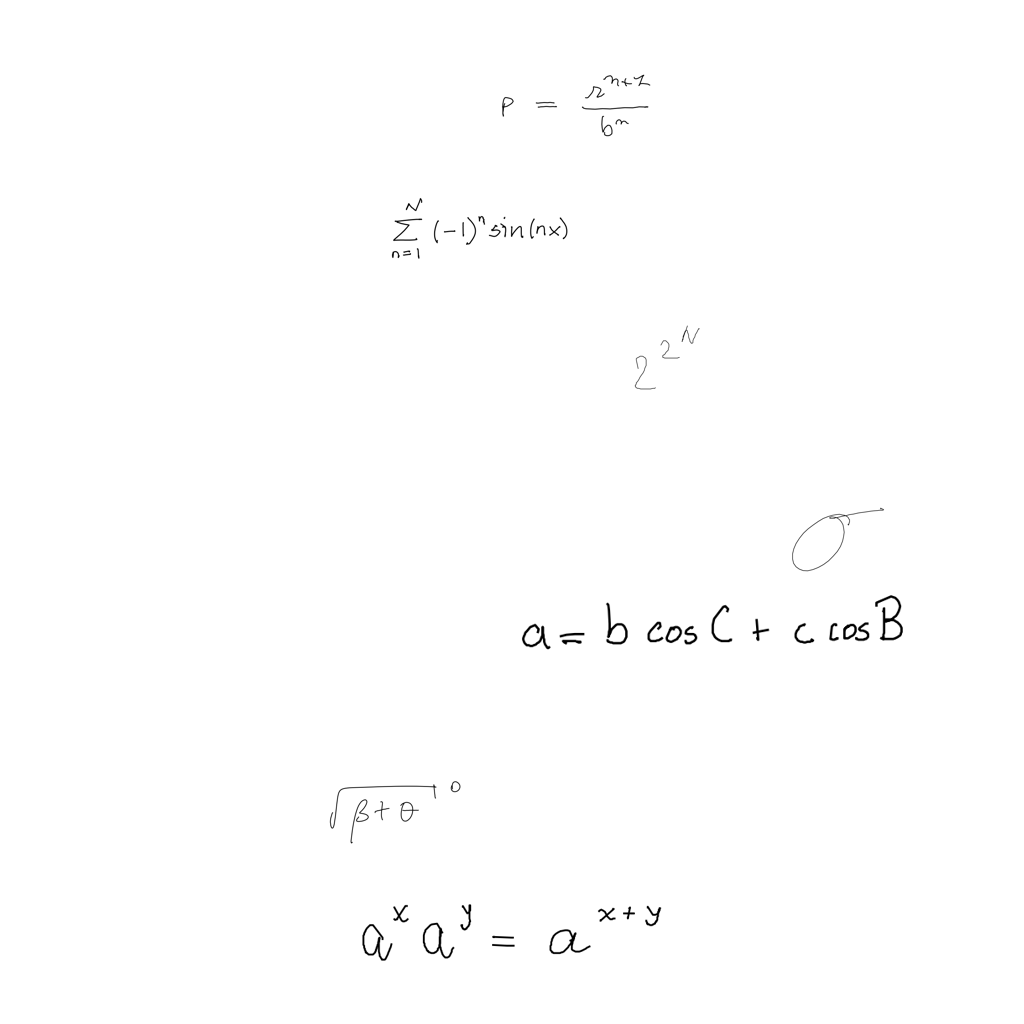 P = \frac{r^{n+1}}{b^n}
\sum_{n=1}^{N} (-1)^n sin(nx)
2^{2^N}
σ
a = b cos C + c cos B
\sqrt{β + θ}^0
a^x a^y = a^{x+y}